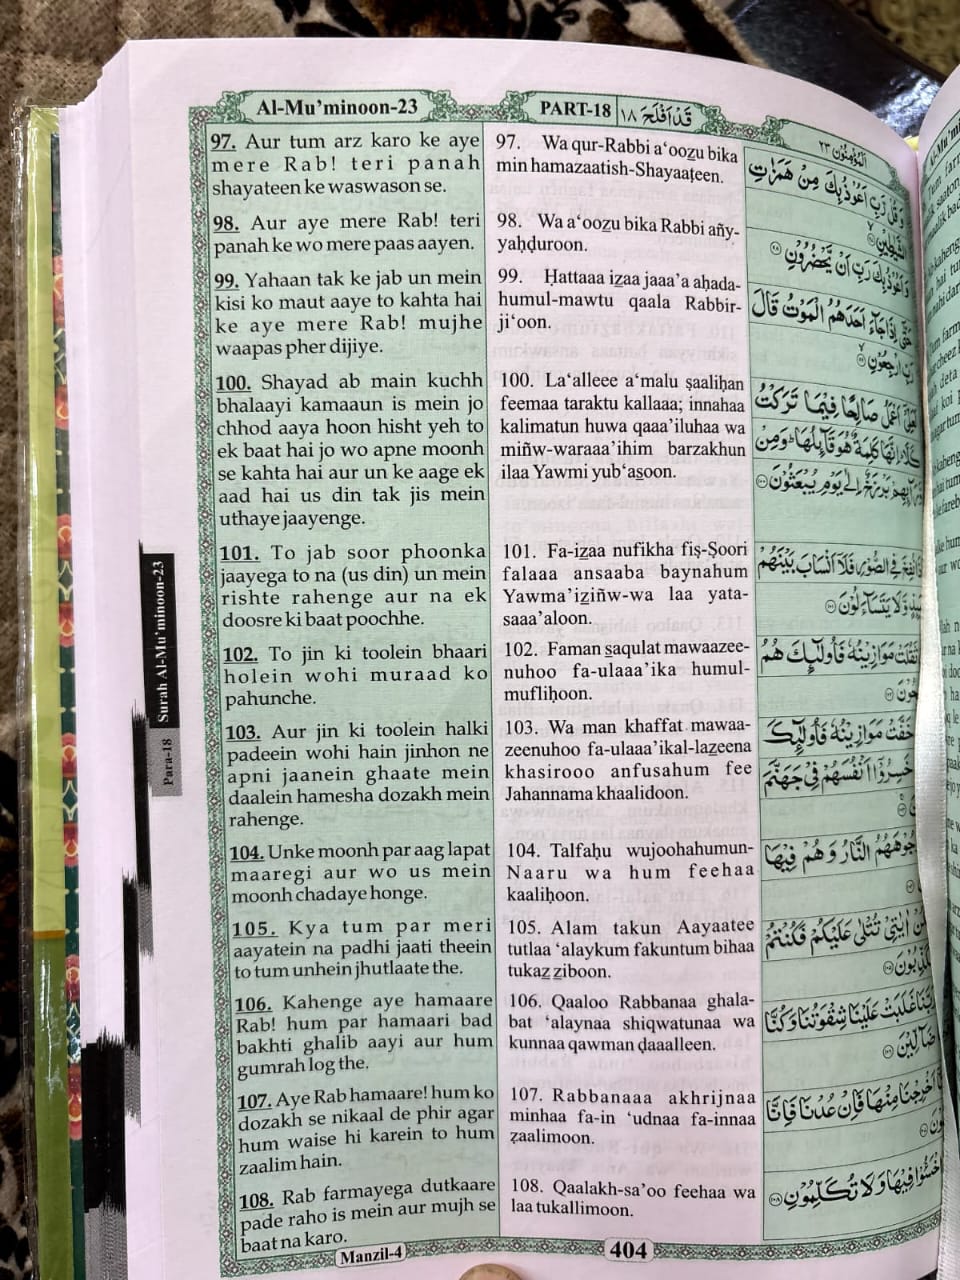 Al-Mu’minoon-23
PART-18
قَدْ اَفْلَحَ ١٨
اَلْمُؤْمِنُوْن ٢٣
97. Aur tum arz karo ke aye
mere Rab! teri panah
shayateen ke waswason se.
98. Aur aye mere Rab! teri
panah ke wo mere paas aayen.
99. Yahaan tak ke jab un mein
kisi ko maut aaye to kahta hai
ke aye mere Rab! mujhe
waapas pher dijiye.
100. Shayad ab main kuchh
bhalaayi kamaaun is mein jo
chhod aaya hoon hisht yeh to
ek baat hai jo wo apne moonh
se kahta hai aur un ke aage ek
aad hai us din tak jis mein
uthaye jaayenge.
101. To jab soor phoonka
jaayega to na (us din) un mein
rishte rahenge aur na ek
doosre ki baat poochhe.
102. To jin ki toolein bhaari
holein wohi muraad ko
pahunche.
103. Aur jin ki toolein halki
padeein wohi hain jinhon ne
apni jaanein ghaate mein
daalein hamesha dozakh mein
rahenge.
104. Unke moonh par aag lapat
maaregi aur wo us mein
moonh chadaye honge.
105. Kya tum par meri
aayatein na padhi jaati theein
to tum unhein jhutlaate the.
106. Kahenge aye hamaare
Rab! hum par hamaari bad
bakhti ghalib aayi aur hum
gumrah log the.
107. Aye Rab hamaare! hum ko
dozakh se nikaal de phir agar
hum waise hi karein to hum
zaalim hain.
108. Rab farmayega dutkaare
pade raho is mein aur mujh se
baat na karo.
97. Wa qur-Rabbi a‘oozu bika
min hamazaatish-Shayaaṭeen.
98. Wa a‘oozu bika Rabbi añy-
yaḥḍuroon.
99. Ḥattaaa izaa jaaa’a aḥada-
humul-mawtu qaala Rabbir-
ji‘oon.
100. La‘alleee a‘malu ṣaaliḥan
feemaa taraktu kallaaa; innahaa
kalimatun huwa qaaa’iluhaa wa
miñw-waraaa’ihim barzakhun
ilaa Yawmi yub‘as̱oon.
101. Fa-izaa nufikha fiṣ-Ṣoori
falaaa ansaaba baynahum
Yawma’iziñw-wa laa yata-
saaa’aloon.
102. Faman s̱aqulat mawaazee-
nuhoo fa-ulaaa’ika humul-
mufliḥoon.
103. Wa man khaffat mawaa-
zeenuhoo fa-ulaaa’ikal-lazeena
khasirooo anfusahum fee
Jahannama khaalidoon.
104. Talfaḥu wujoohahumun-
Naaru wa hum feehaa
kaaliḥoon.
105. Alam takun Aayaatee
tutlaa ‘alaykum fakuntum bihaa
tukaz ziboon.
106. Qaaloo Rabbanaa ghala-
bat ‘alaynaa shiqwatunaa wa
kunnaa qawman ḍaaalleen.
107. Rabbanaaa akhrijnaa
minhaa fa-in ‘udnaa fa-innaa
ẓaalimoon.
108. Qaalakh-sa’oo feehaa wa
laa tukallimoon.
وَقُلْ رَّبِّ اَعُوْذُ بِكَ مِنْ هَمَزٰتِ
الشَّيٰطِيْنِ
وَاَعُوْذُ بِكَ رَبِّ اَنْ يَّحْضُرُوْنِ
حَتّٰۤى اِذَا جَآءَ اَحَدَهُمُ الْمَوْتُ قَالَ
رَبِّ ارْجِعُوْنِ
لَعَلِّيْۤ اَعْمَلُ صَالِحًا فِيْمَا تَرَكْتُ
كَلَّا ؕ اِنَّهَا كَلِمَةٌ هُوَ قَآئِلُهَا ؕ وَمِنْ
وَّرَآئِهِمْ بَرْزَخٌ اِلٰى يَوْمِ يُبْعَثُوْنَ
نُفِخَ فِي الصُّوْرِ فَلَاۤ اَنْسَابَ بَيْنَهُمْ
وَّلَا يَتَسَآءَلُوْنَ
ثَقُلَتْ مَوَازِيْنُهٗ فَاُولٰٓئِكَ هُمُ
خَفَّتْ مَوَازِيْنُهٗ فَاُولٰٓئِكَ
خَسِرُوْۤا اَنْفُسَهُمْ فِيْ جَهَنَّمَ
وُجُوْهَهُمُ النَّارُ وَهُمْ فِيْهَا
اٰيٰتِيْ تُتْلٰى عَلَيْكُمْ فَكُنْتُمْ
غَلَبَتْ عَلَيْنَا شِقْوَتُنَا وَكُنَّا
ضَآلِّيْنَ
اَخْرِجْنَا مِنْهَا فَاِنْ عُدْنَا فَاِنَّا
اخْسَـُٔوْا فِيْهَا وَلَا تُكَلِّمُوْنِ
Surah Al-Mu’minoon-23
Para-18
Manzil-4
404